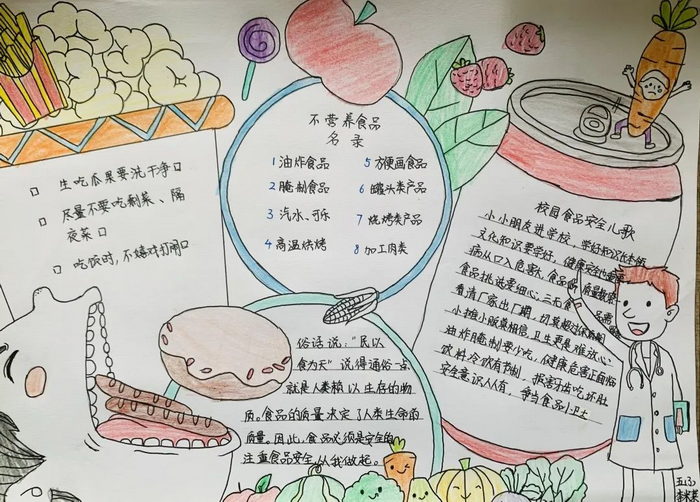 生吃瓜果要洗干净
尽量不要吃剩菜、隔
夜菜
吃饭时,不嬉戏打闹
不营养食品
名录
1 油炸食品
2 腌制食品
3 汽水、可乐
4 高温烘烤
5 方便面食品
6 罐头类产品
7 烧烤类产品
8 加工肉类
俗话说:"民以
食为天"说得通俗一点
就是人类赖以生存的物
质。食品的质量决定了人类生命的
质量。因此,食品必须是安全的
注重食品安全,从我做起。
校园食品安全儿歌
小小朋友进学校,学好知识
文化知识要学好,健康安全也重要
病从口入危害大,食品
食品挑选要细心,三无食品
看清厂家出厂期,切莫超过保质期
小摊小贩莫相信,卫生更是难放心
油炸腌制要少吃,健康危害正自临
饮料冷饮有节制,损害牙齿吃坏肚
安全意识人人有,争当食品小卫士